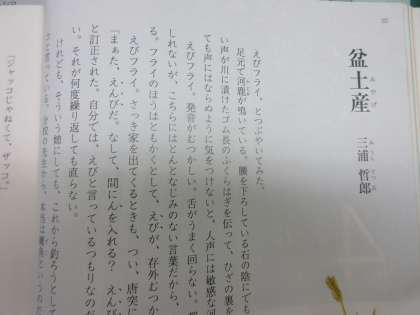 盆土産
みやげ
三浦 哲郎
みうら てつお
えびフライ、とつぶやいてみた。
足元で河鹿が鳴いている。腰を下ろしている石の陰にでも
い声が川に漬けたゴム長のふくらはぎを伝って、ひざの裏を
ても声にはならぬように気をつけないと、人声には敏感な河
えびフライ。発音がむつかしい。舌がうまく回らない。都
しれないが、こちらにはとんとなじみのない言葉だから、
る。フライのほうはともかくとして、えびが、存外むつか
えびフライ。さっき家を出てくるときも、つい、唐突に
「まぁた、えんびだ。なして、間にんを入れる？ えんび
と訂正された。自分では、えびと言っているつもりなのだ
い。それが何度繰り返しても直らない。
けれども、そういう姉にしても、これから釣ろうとして
「ジャッコじゃねくて、ザッコ。」